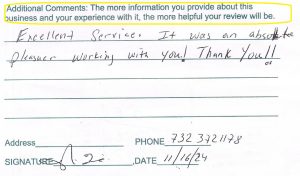 Additional Comments: The more information you provide about this
business and your experience with it, the more helpful your review will be.
Excellent Service. It was an absolute
pleasure working with you! Thank You!!
Address
PHONE 732 372 1178
SIGNATURE
DATE 11/16/24